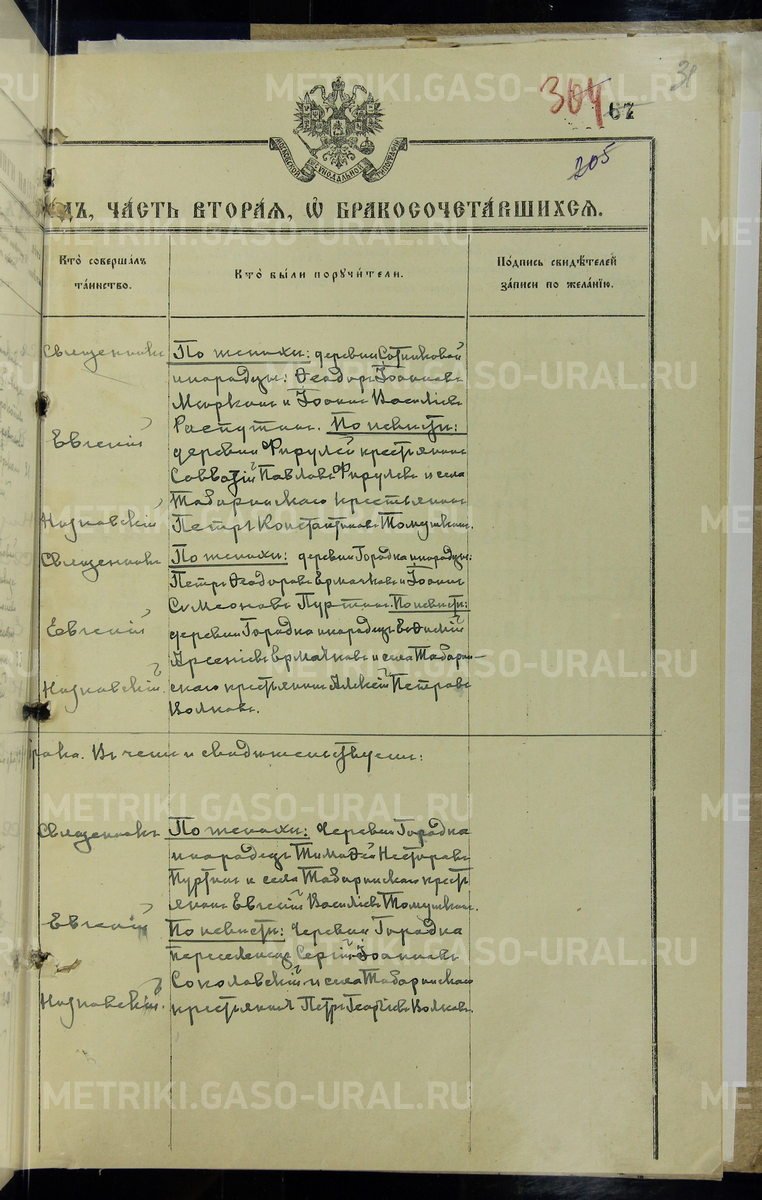 METRIKI.GASO-URAL.RU
304
31
67
205
МОСКОВСКОЙ СУНОДАЛЬНОЙ ТИПОГРАФІИ
ДЪ, ЧА́СТЬ ВТОРА́Я, Ѿ БРАКОСОЧЕТА́ВШИХСЯ.
Кто̀ соверша́лъ
та́инство.
Кто̀ бы́ли поручи́тели.
По́дпись свидѣ́телей
за́писи по жела́нїю.
Священникъ
Евгеній
Наумовскій
По женихѣ: деревни Сотниковой
инородцы: Ѳеодоръ Іоанновъ
и Іоаннъ Василіевъ
Распутинъ. По невѣстѣ:
деревни Фирулей крестьянинъ
Савватій Павловъ Фирулевъ и села
Табаринскаго крестьянинъ
Петръ Константиновъ Томушкинъ.
Священникъ
Евгеній
По женихѣ: деревни Городка инородцы:
Петръ Ѳеодоровъ Ермачковъ и Іоаннъ
Симеоновъ Пуртинъ. По невѣстѣ:
деревни Городка инородецъ Евѳимій
Арсеніевъ Ермачковъ и села Табарин-
скаго крестьянинъ Алексѣй Петровъ
Волковъ.
брака. Въ чемъ и свидѣтельствуемъ:
Священникъ
Евгеній
По женихѣ: деревни Городка
инородецъ Тимоѳей Несторовъ
Пуртинъ и села Табаринскаго кресть-
янинъ Евгеній Василіевъ Томушкинъ.
По невѣстѣ: деревни Городка
переселенецъ Сергій Іоанновъ
Соколовскій и села Табаринскаго
крестьянинъ Петръ Георгіевъ Волковъ.